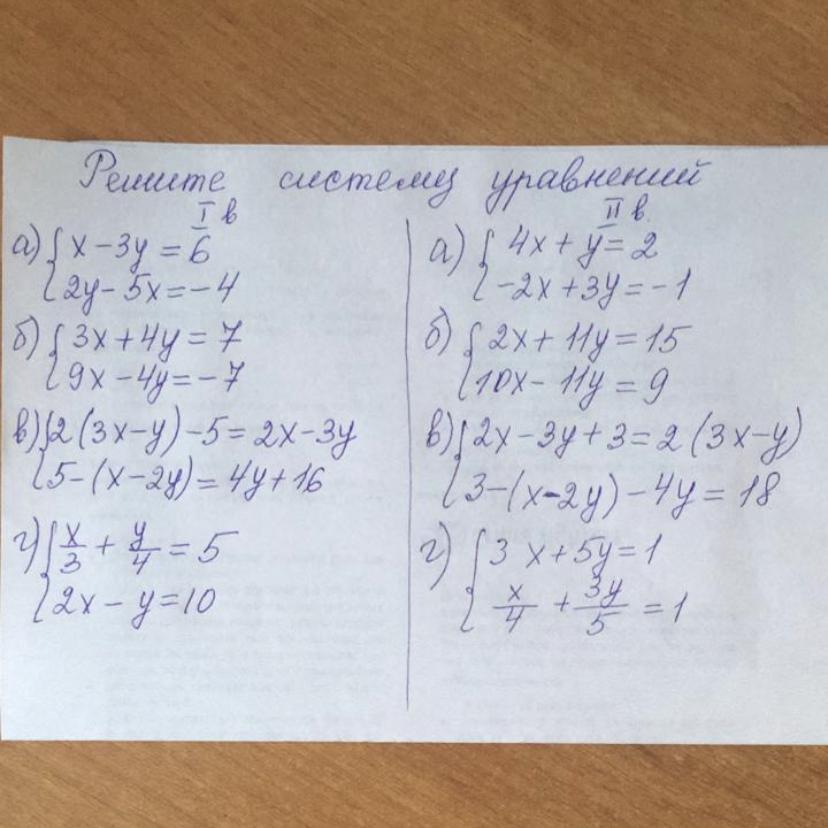 Решите систему уравнений
I в
а) { x - 3y = 6
2y - 5x = -4
б) { 3x + 4y = 7
9x - 4y = -7
в) { 2(3x - y) - 5 = 2x - 3y
5 - (x - 2y) = 4y + 16
г) { x/3 + y/4 = 5
2x - y = 10
II в.
а) { 4x + y = 2
-2x + 3y = -1
б) { 2x + 11y = 15
10x - 11y = 9
в) { 2x - 3y + 3 = 2(3x - y)
3 - (x - 2y) - 4y = 18
г) { 3x + 5y = 1
x/4 + 3y/5 = 1